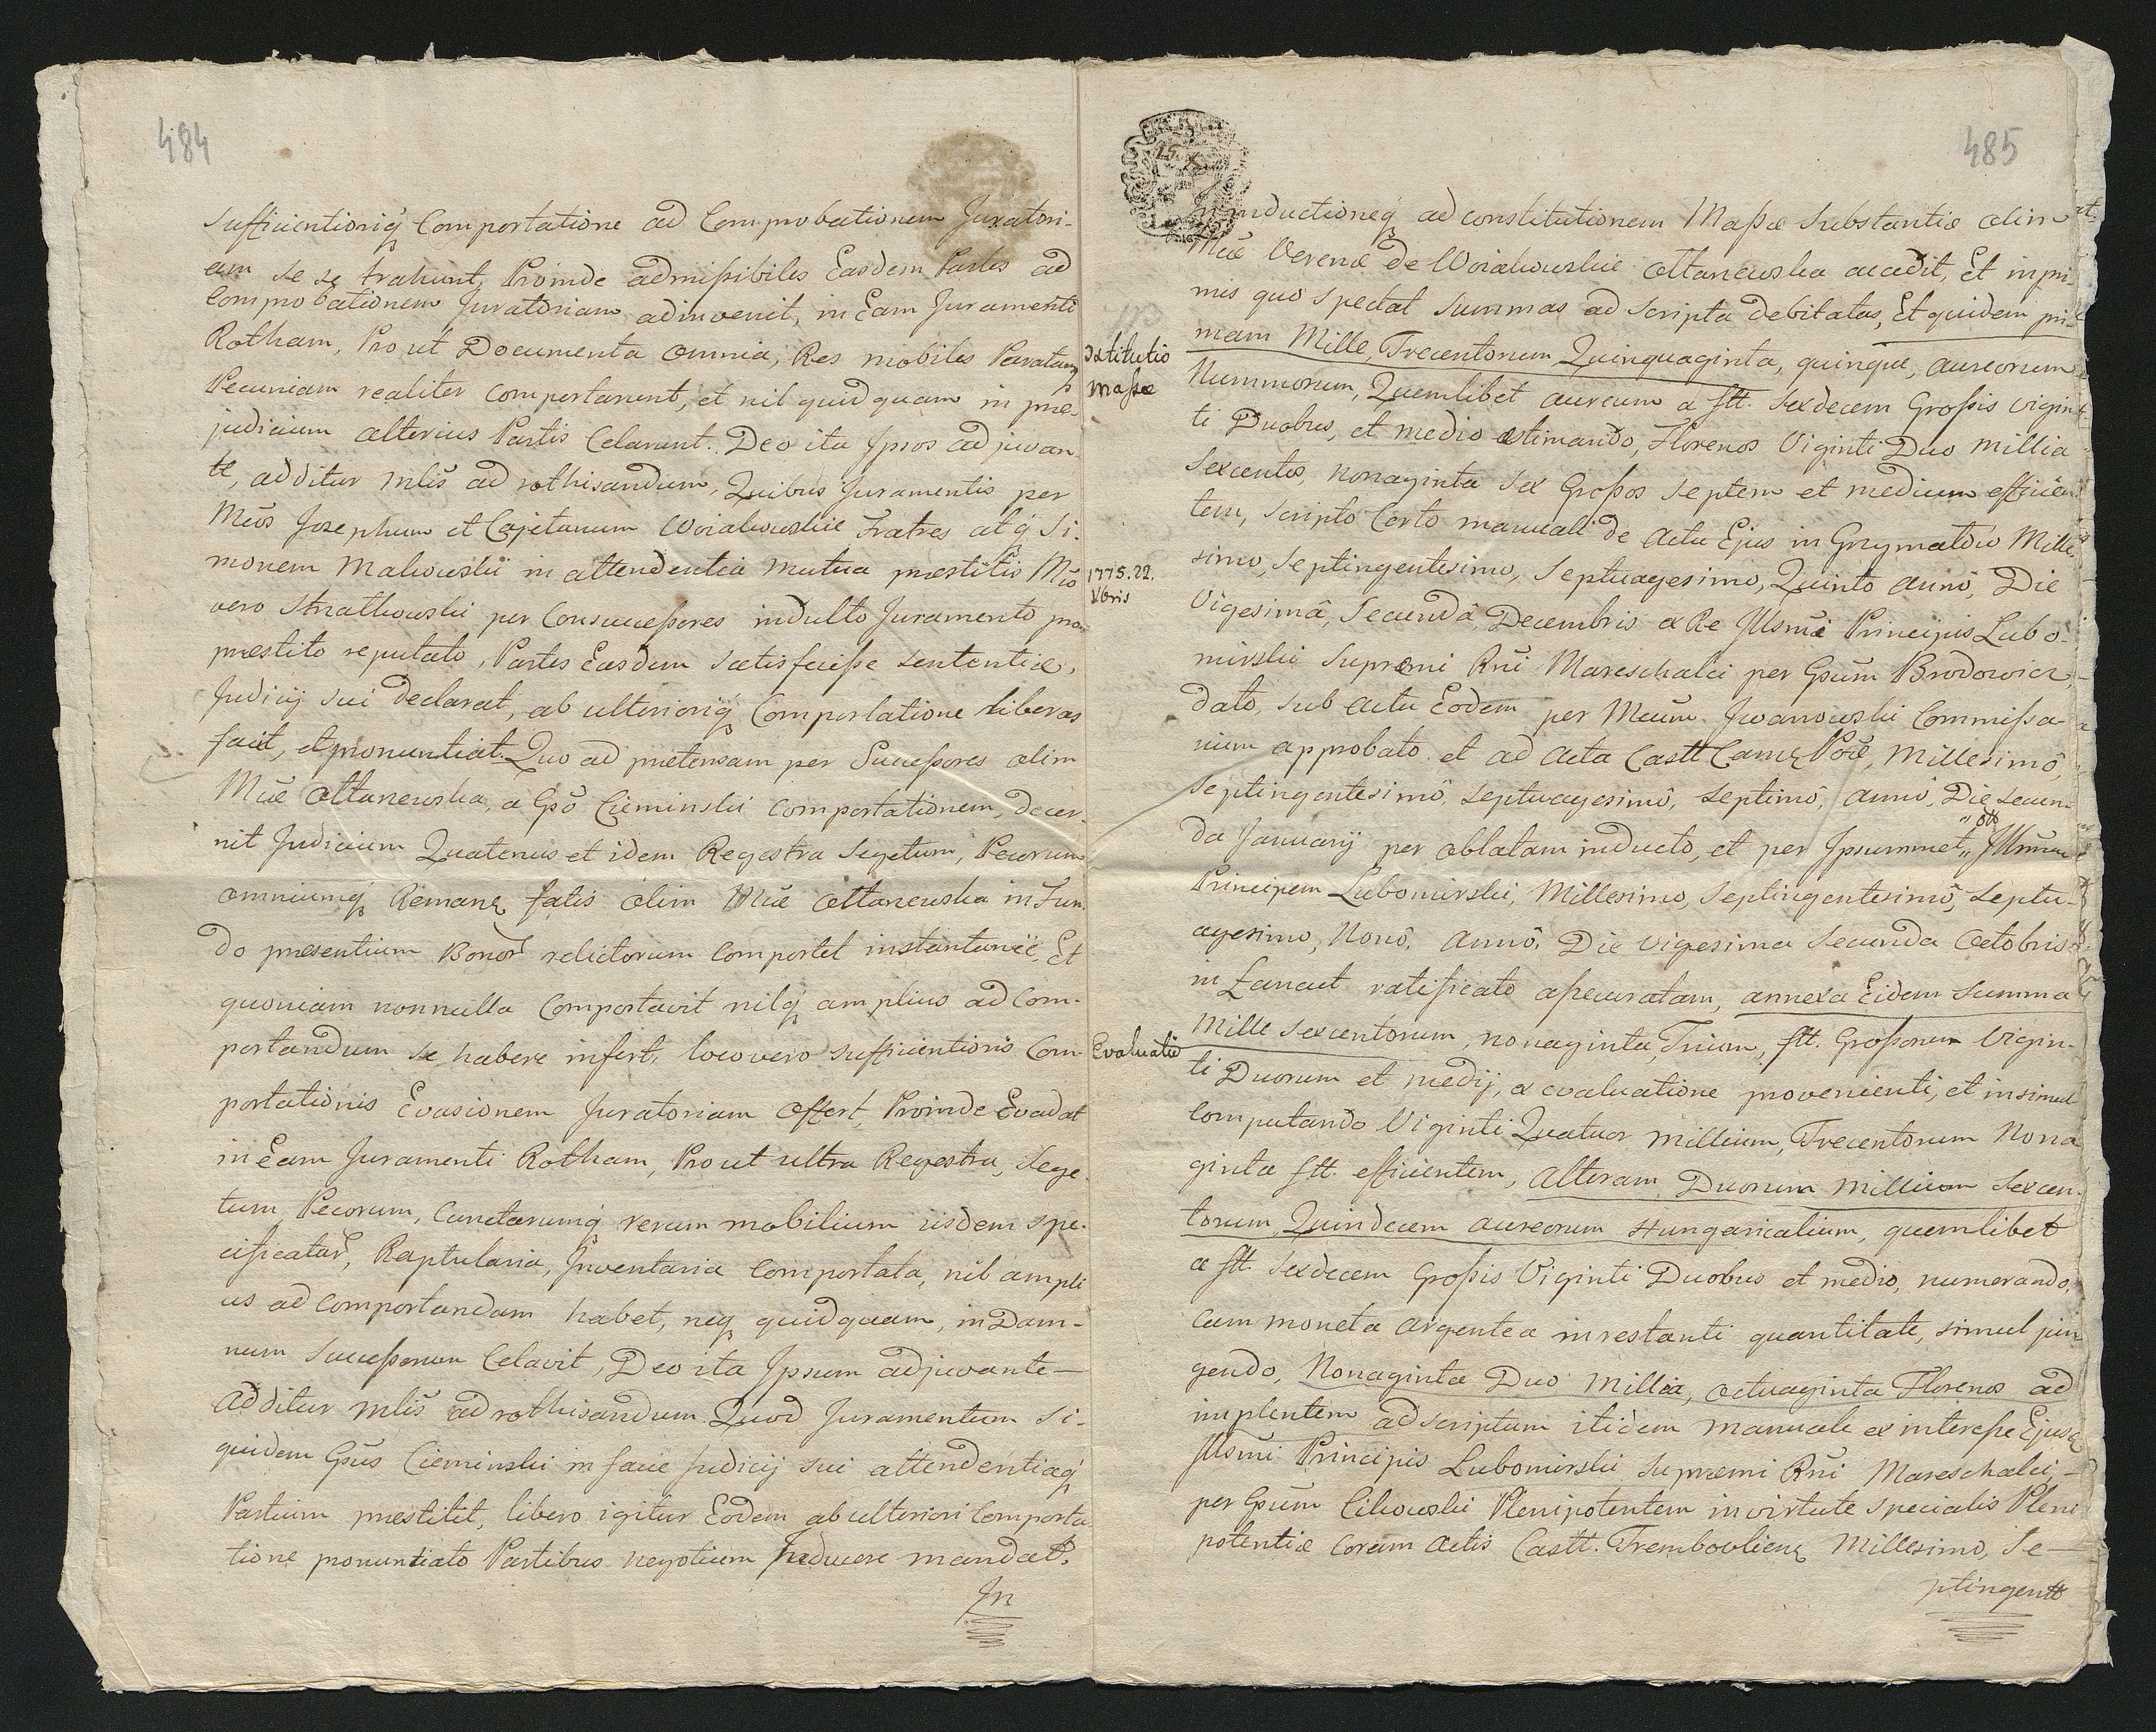 484
sufficientioriq́ Comportatione ad Comprobationem Juratori-
am se se trahunt, Proinde admißibiles Easdem Partes ad
Comprobationem Juratoriam adinvenit, in Eam Juramenti
Rotham, Pro ut Documenta omnia, Res mobiles Paratamq́
Pecuniam realiter comportarunt, et nil quidquam in præ-
judicium alterius Partis Celarunt. Deo ita Ipsos adjuvan-
te, additur mlis̃ ad rothisandum, Quibus Juramentis per
Mc̃os Josephum et Cajetanum Woiakowskie Fratres atq́ Si-
monem Makowski in attendentia mutua præstitis Mc̃o
vero Stratkowski per Consucceßores indulto Juramento pro
præstito reputato, Partes Easdem satisfeciße sententiæ,
Judicij sui declarat, ab ulterioriq́ Comportatione liberas
facit, et pronuntiat. Quo ad prætensam per Succeßores olim
Mc̃æ Attanewska, a Gsõ Cieminski comportationem, decer-
nit Judicium Quatenus et idem Regestra Segetum, Pecorum
omniumq́ Remanę fatis olim Mc̃æ Attanewska in Fun-
do præsentium Bonor̃ relictorum Comportet instantaneè, Et
quoniam nonnulla Comportavit nilq́ amplius ad Com-
portandum se habere infert, loco vero sufficientioris Com-
portationis Evasionem Juratoriam offert, Proinde Evadat
in Eam Juramenti Rotham, Pro ut ultra Regestra, Sege-
tum Pecorum, Cunctarumq́ rerum mobilium iisdem spe-
cificatar̃, Raptularia, Inventaria Comportata, nil ampli
us ad comportandam habet, neq́ quidquam, in Dam-
num Succeßorum Celavit, Deo ita Ipsum adjuvante—
Additur mlis̃ ad rothisandum. Quod Juramentum si-
quidem Gsũs Cieminski in facie Judicij sui attendentiaq́
Partium præstitit, libero igitur Eodem ab ulteriori Comporta
tione pronuntiato Partibus negotium Inducere mandat.
In
485
15 X
Inductioneq́ ad constitutionem Maßæ Substantiæ olim
Mc̃æ Verenæ de Woiakowskie Attanewska accedit, Et inpri-
mis quo spectat summas ad scripta debitatas, Et quidem pri-
stitutio
Maßæ
mam Mille, Trecentorum Quinquaginta, quinque, aureorum
Nummorum, Quemlibet aureum a fltt. sexdecem Großis vigin-
ti Duobus, et medio æstimando, Florenos Viginti Duo millia
sexcentos, nonaginta sex Großos septem et medium efficien-
tem, scripto Certo manuali de Actu Ejus in Grzymałów Mille
1775. 22.
Xbris
simo, septingentesimo, Septuagesimo, Quinto annô, Die
Vigesimâ, Secundâ, Decembris ex Re Jllsm̃i Principis Lubo-
mirski supremi Rñi Mareschalci per Gsũm Brodowicz
dato, sub actu Eodem per Mcũm Jwanowski Commißa-
rium approbato et ad Acta Castt Camę Pod̃e, Millesimô,
septingentesimô, septuagesimô, septimô, annô, Die secun-
da Januarij per oblatam inducto, et per Jpsummet „ ott „ Jllsm̃um
Principem Lubomirski, Millesimo, septingentesimô, septu-
agesimo, Nonô, annô, Die vigesima secunda Octobris
in Łancut ratificato aßecuratam, annexa Eidem summa
Evaluatio
Mille sexcentorum, nonaginta, Trium, fltt. Großorum Vigin-
ti Duorum et medij, ex evaluatione provenienti, et insimul
Computando Viginti Quatuor millium, Trecentorum Nona
ginta fltt. efficientem, Alteram Duorum millium sexcen-
torum Quindecem aureorum Hungaricalium, quemlibet
a fltt. sexdecem Großis Viginti Duobus et medio, numerando,
cum moneta argentea in restanti quantitate, simul jun
gendo, Nonaginta Duo millia, octuaginta Florenos ad
implentem ad scriptum itidem manuale ex intereße Ejusę
Jllsm̃i Principis Lubomirski supremi Rñi Mareschalci,—
per Gsũm Cikowski Plenipotentem in virtute specialis Pleni
potentiæ coram actis Castt. Tremboulienę Millesimo, Se—
ptingentt